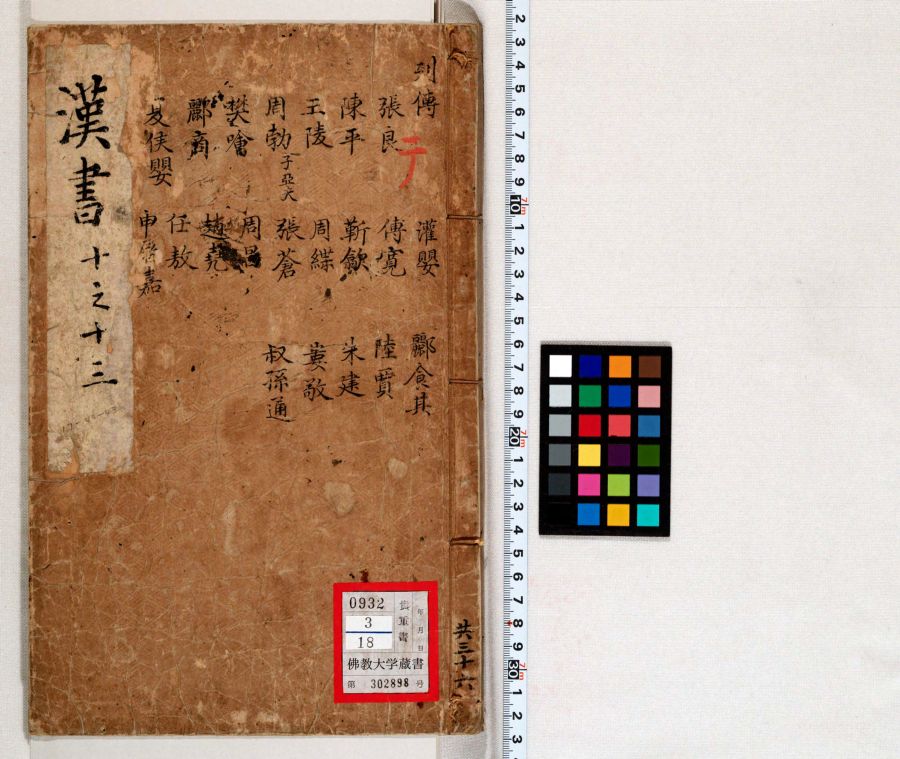 漢書 十之十三
列傳
張良
陳平
王陵
周勃 子亞夫
樊噲
酈商
夏侯嬰
灌嬰
傅寛
靳歙
周緤
張蒼
周昌
趙堯
任敖
申屠嘉
酈食其
陸賈
朱建
婁敬
叔孫通
共三十六
0932
3
18
年 月 日
佛教大学蔵書
第 302898 号
2 3 4 5 6 7 8 9 10 1 2 3 4 5 6 7 8 9 20 1 2 3 4 5 6 7 8 9 30 1 2 3